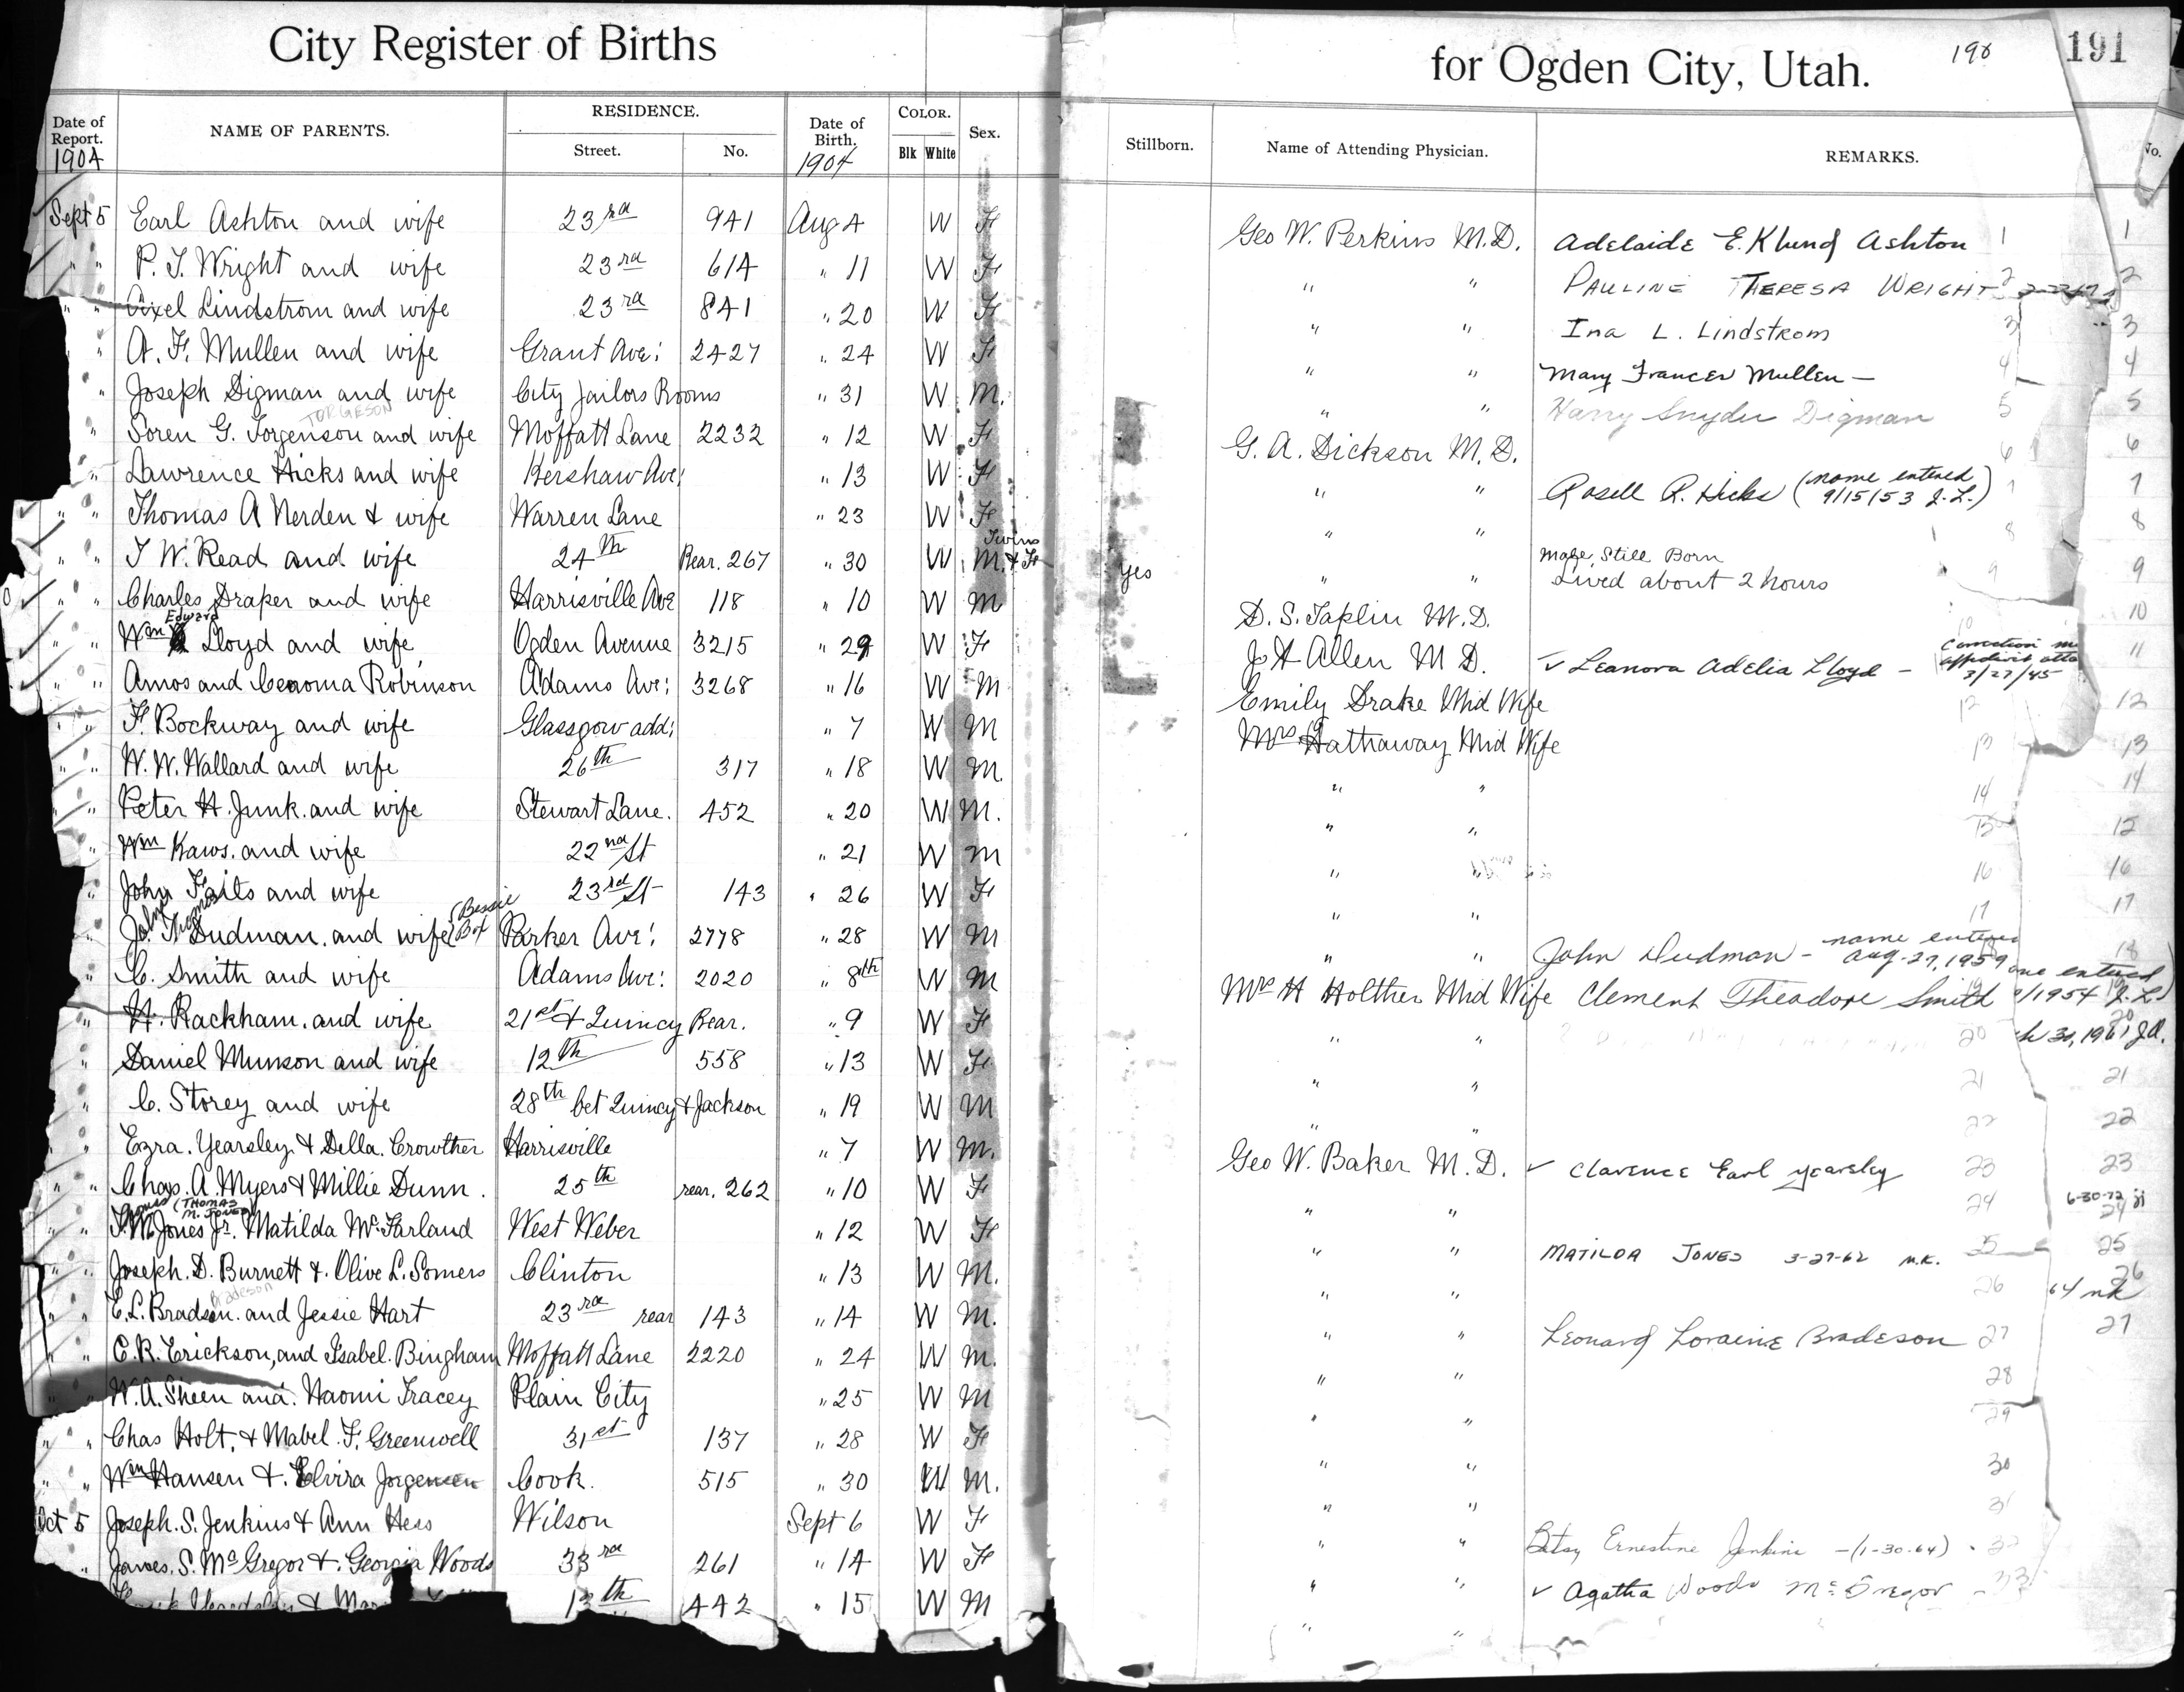 City Register of Births for Ogden City, Utah. 190 191
Date of Report. 1904 NAME OF PARENTS. RESIDENCE. Street. No. Date of Birth. 1904 COLOR. Blk White Sex. Stillborn. Name of Attending Physician. REMARKS. No.
Sept 5 Earl Ashton and wife 23rd 941 Aug 4 W F Geo W. Perkins M.D. Adelaide E. Klund Ashton 1 1
" " P. T. Wright and wife 23rd 614 " 11 W F " " PAULINE THERESA WRIGHT 2 2
" " Axel Lindstrom and wife 23rd 841 " 20 W F " " Ina L. Lindstrom 3 3
" A. F. Mullen and wife Grant Ave: 2427 " 24 W F " " Mary Frances Mullen — 4 4
" Joseph Digman and wife City Jailors Rooms " 31 W M. " " Harry Snyder Digman 5 5
TORGESON
" Soren G. Torgenson and wife Moffatt Lane 2232 " 12 W F G. A. Dickson M.D. 6 6
" Lawrence Hicks and wife Kershaw Ave: " 13 W F " " Rosell R. Hicks (name entered 9/15/53 J.L.) 7 7
" " Thomas A Nerden & wife Warren Lane " 23 W F " " 8 8
" " T W. Read and wife 24th Rear. 267 " 30 W Twins M. & F yes " " Male Still Born Lived about 2 hours 9 9
" " Charles Draper and wife Harrisville Ave 118 " 10 W M D. S. Taplin M.D. 10 10
" " Wm Edward Lloyd and wife Ogden Avenue 3215 " 29 W F J. A Allen M D. ✓ Leanora Adelia Lloyd — Correction affidavit 3/27/45 11
" " Amos and Cenoma Robinson Adams Ave: 3268 " 16 W M Emily Drake Mid Wife 12 12
" " F. Bockway and wife Glassgow add: " 7 W M Mrs Hathaway Mid Wife 13 13
" " W. W. Wallard and wife 26th 317 " 18 W M. " " 14 14
" " Peter H. Junk. and wife Stewart Lane. 452 " 20 W M. " " 15 15
" Wm Kaws. and wife 22nd St " 21 W M " 16 16
" John Faits and wife 23rd St 143 " 26 W F " " 17 17
" Jo. T. John Thomas Dudman. and wife (Bessie Parker Ave: 2778 " 28 W M " " John Dudman - name entered Aug-27, 1959 18 18
" C. Smith and wife Adams Ave: 2020 " 8th W M Mrs H Holther Mid Wife Clement Theodore Smith entered /1954 J.L.)
" H. Rackham. and wife 21st & Quincy Rear. " 9 W F " " 20 20 30, 1961 J.A.
" Daniel Munson and wife 12th 558 " 13 W F " " 21 21
" C. Storey and wife 28th bet Quincy & Jackson " 19 W M " " 22 22
" Ezra. Yearsley & Della. Crowther Harrisville " 7 W M. Geo W. Baker M.D. ✓ Clarence Earl Yearsley 23 23
" " Chas. A. Myers & Millie Dunn. 25th rear. 262 " 10 W F " " 24 6-30-72 jj 24
(THOMAS M. JONES)
" " T. M. Jones Jr. Matilda McFarland West Weber " 12 W F " " MATILDA JONES 3-27-62 M.K. 25 25
" " Joseph. D. Burnett & Olive L. Somers Clinton " 13 W M. " " 26 64 nk 26
Bradeson
" " E. L. Bradson. and Jessie Hart 23rd rear 143 " 14 W M. " " Leonard Loraine Bradeson 27 27
" " C. R. Erickson, and Isabel. Bingham Moffatt Lane 2220 " 24 W M. " " 28
" " W. A. Sheen and. Naomi Tracey Plain City " 25 W M " " 29
" " Chas Holt, & Mabel. F. Greenwell 31st 137 " 28 W F " " 30
" " Wm Hansen & Elvira Jorgensen Cook. 515 " 30 W M. " " 31
Oct 5 Joseph. S. Jenkins & Ann Hess Wilson Sept 6 W F " " Betsy Ernestine Jenkins - (1-30-64) 32
" James. S. McGregor & Georgia Woods 33rd 261 " 14 W F " " ✓ Agatha Woods McGregor 33
& 13th 442 " 15 W M " "